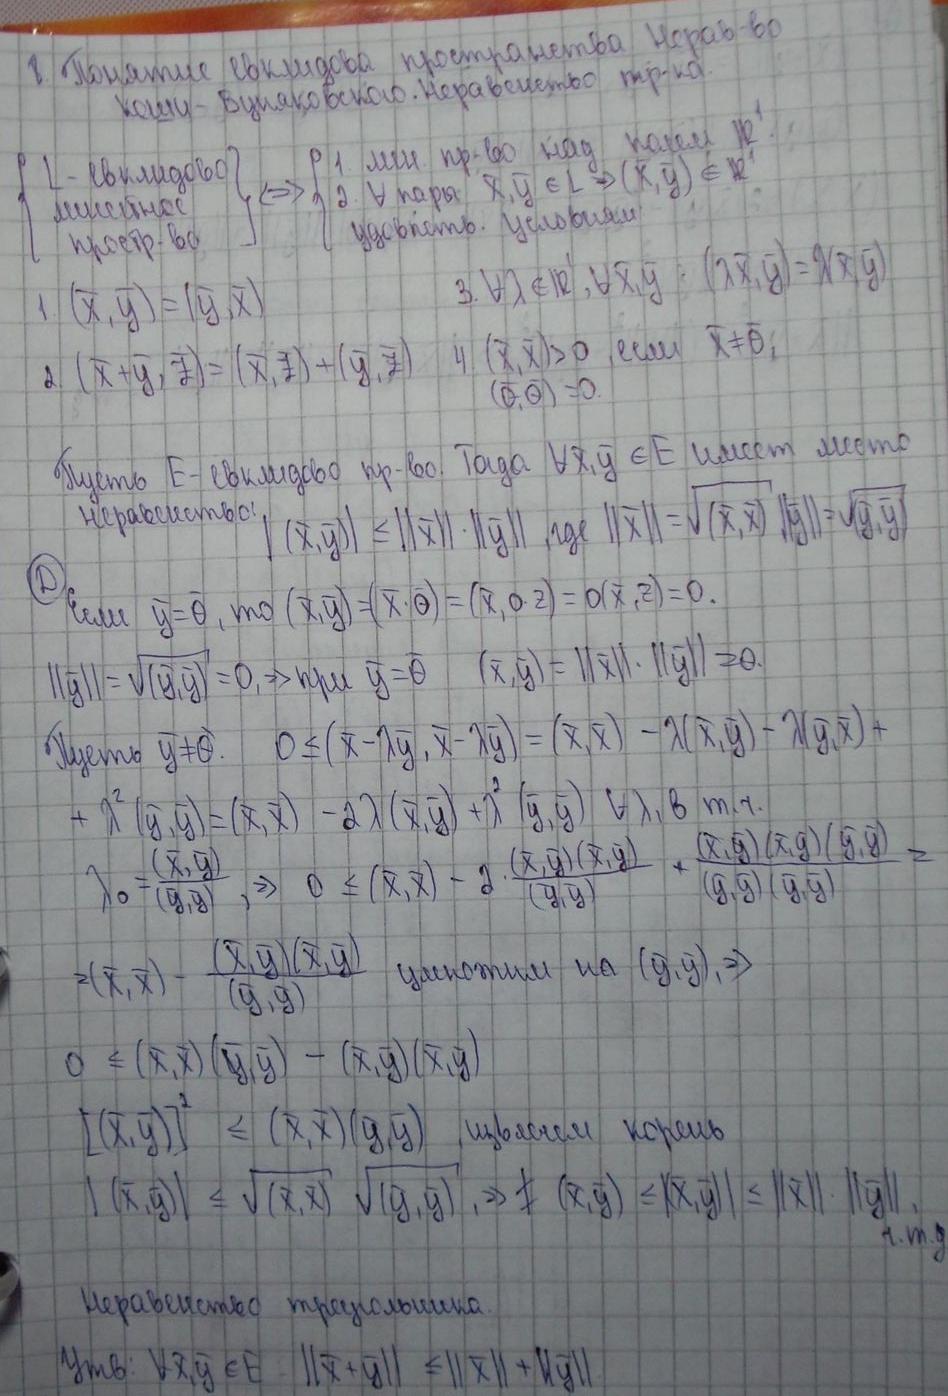 1. Понятие евклидова пространства Нерав-во
Коши-Буняковского. Неравенство тр-ка.
{L - евклидово линейное простр-во} <=> {1. лин. пр-во над полем ℝ¹.
2. ∀ пары x̄,ȳ ∈ L => (x̄,ȳ) ∈ ℝ¹
удовлетв. условиям
1. (x̄,ȳ)=(ȳ,x̄)
3. ∀λ∈ℝ¹, ∀x̄,ȳ : (λx̄,ȳ)=λ(x̄,ȳ)
2. (x̄+ȳ, z̄)=(x̄,z̄)+(ȳ,z̄)
4. (x̄,x̄)>0, если x̄≠θ̄;
(θ̄,θ̄)=0.
Пусть E-евклидово пр-во. Тогда ∀x̄,ȳ ∈E имеет место
неравенство:
|(x̄,ȳ)| ≤ ||x̄||·||ȳ||, где ||x̄||=√(x̄,x̄) ||ȳ||=√(ȳ,ȳ)
Ⓓ
Если ȳ=θ̄, то (x̄,ȳ)=(x̄·θ̄)=(x̄,0·z)=0(x̄,z)=0.
||ȳ||=√(ȳ,ȳ)=0, => при ȳ=θ̄ (x̄,ȳ)=||x̄||·||ȳ||=0.
Пусть ȳ≠θ̄. 0≤(x̄-λȳ, x̄-λȳ)=(x̄,x̄) - λ(x̄,ȳ) - λ(ȳ,x̄) +
+ λ²(ȳ,ȳ)=(x̄,x̄) - 2λ(x̄,ȳ) + λ²(ȳ,ȳ) ∀λ, в т.ч.
λ₀ = (x̄,ȳ)/(ȳ,ȳ), => 0 ≤ (x̄,x̄) - 2·(x̄,ȳ)(x̄,ȳ)/(ȳ,ȳ) + (x̄,ȳ)(x̄,ȳ)(ȳ,ȳ)/(ȳ,ȳ)(ȳ,ȳ) =
=(x̄,x̄) - (x̄,ȳ)(x̄,ȳ)/(ȳ,ȳ) умножим на (ȳ,ȳ), =>
0 ≤ (x̄,x̄)(ȳ,ȳ) - (x̄,ȳ)(x̄,ȳ)
[(x̄,ȳ)]² ≤ (x̄,x̄)(ȳ,ȳ) извлечем корень
|(x̄,ȳ)| ≤ √(x̄,x̄) √(ȳ,ȳ), => (x̄,ȳ) ≤ |(x̄,ȳ)| ≤ ||x̄||·||ȳ||,
ч.т.д
Неравенство треугольника.
Утв: ∀x̄,ȳ ∈E ||x̄+ȳ|| ≤ ||x̄||+||ȳ||